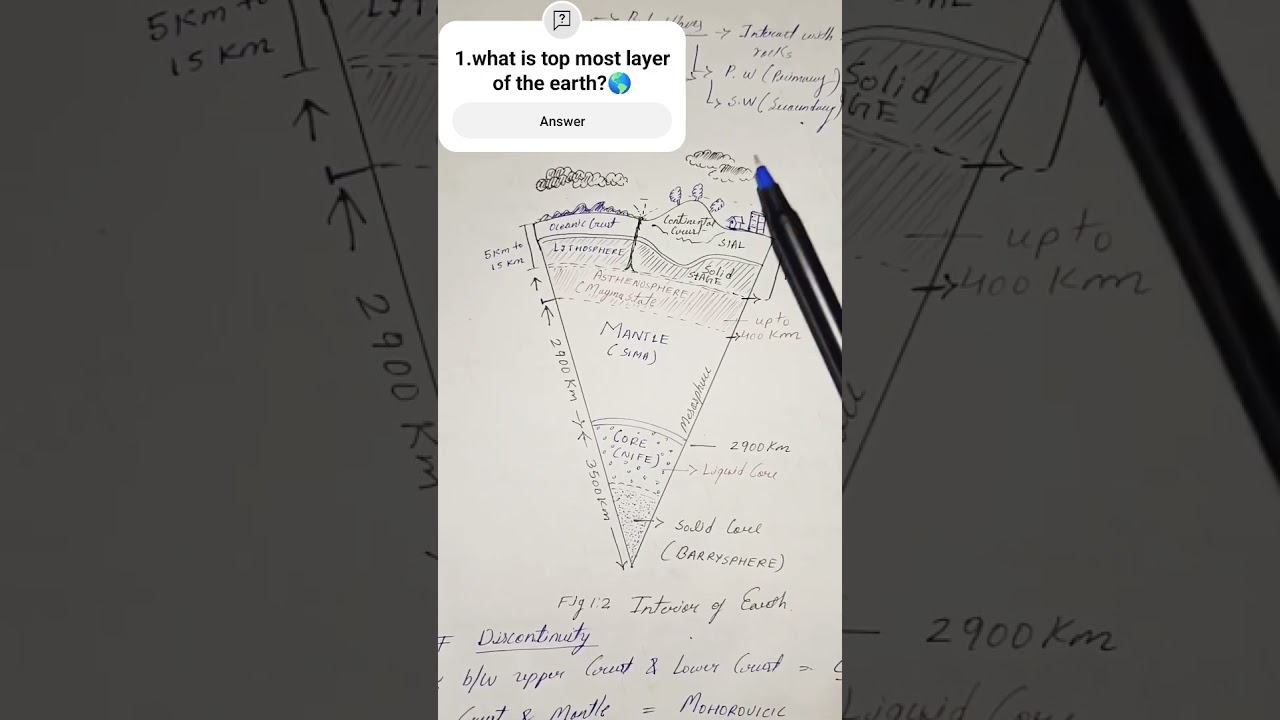 1.what is top most layer
of the earth?🌎
Answer
→ Interact with
rocks
→ P.W (Primary)
→ S.W (Secondary)
Oceanic Crust
Continental
Crust
SIAL
5Km to
15 Km
LITHOSPHERE
Solid
STAGE
ASTHENOSPHERE
(Magma state
up to
400 Km
MANTLE
(SIMA)
2900 Km
Mesosphere
CORE
(NIFE)
2900 Km
Liquid Core
3500 Km
Solid Core
(BARRYSPHERE)
Fig 1:2 Interior of Earth.
Discontinuity
b/w upper Crust & Lower Crust =
Crust & Mantle = MOHOROVICIC
5Km to
15 Km
2900 Km
Solid
up to
400 Km
2900 Km
Liquid Core